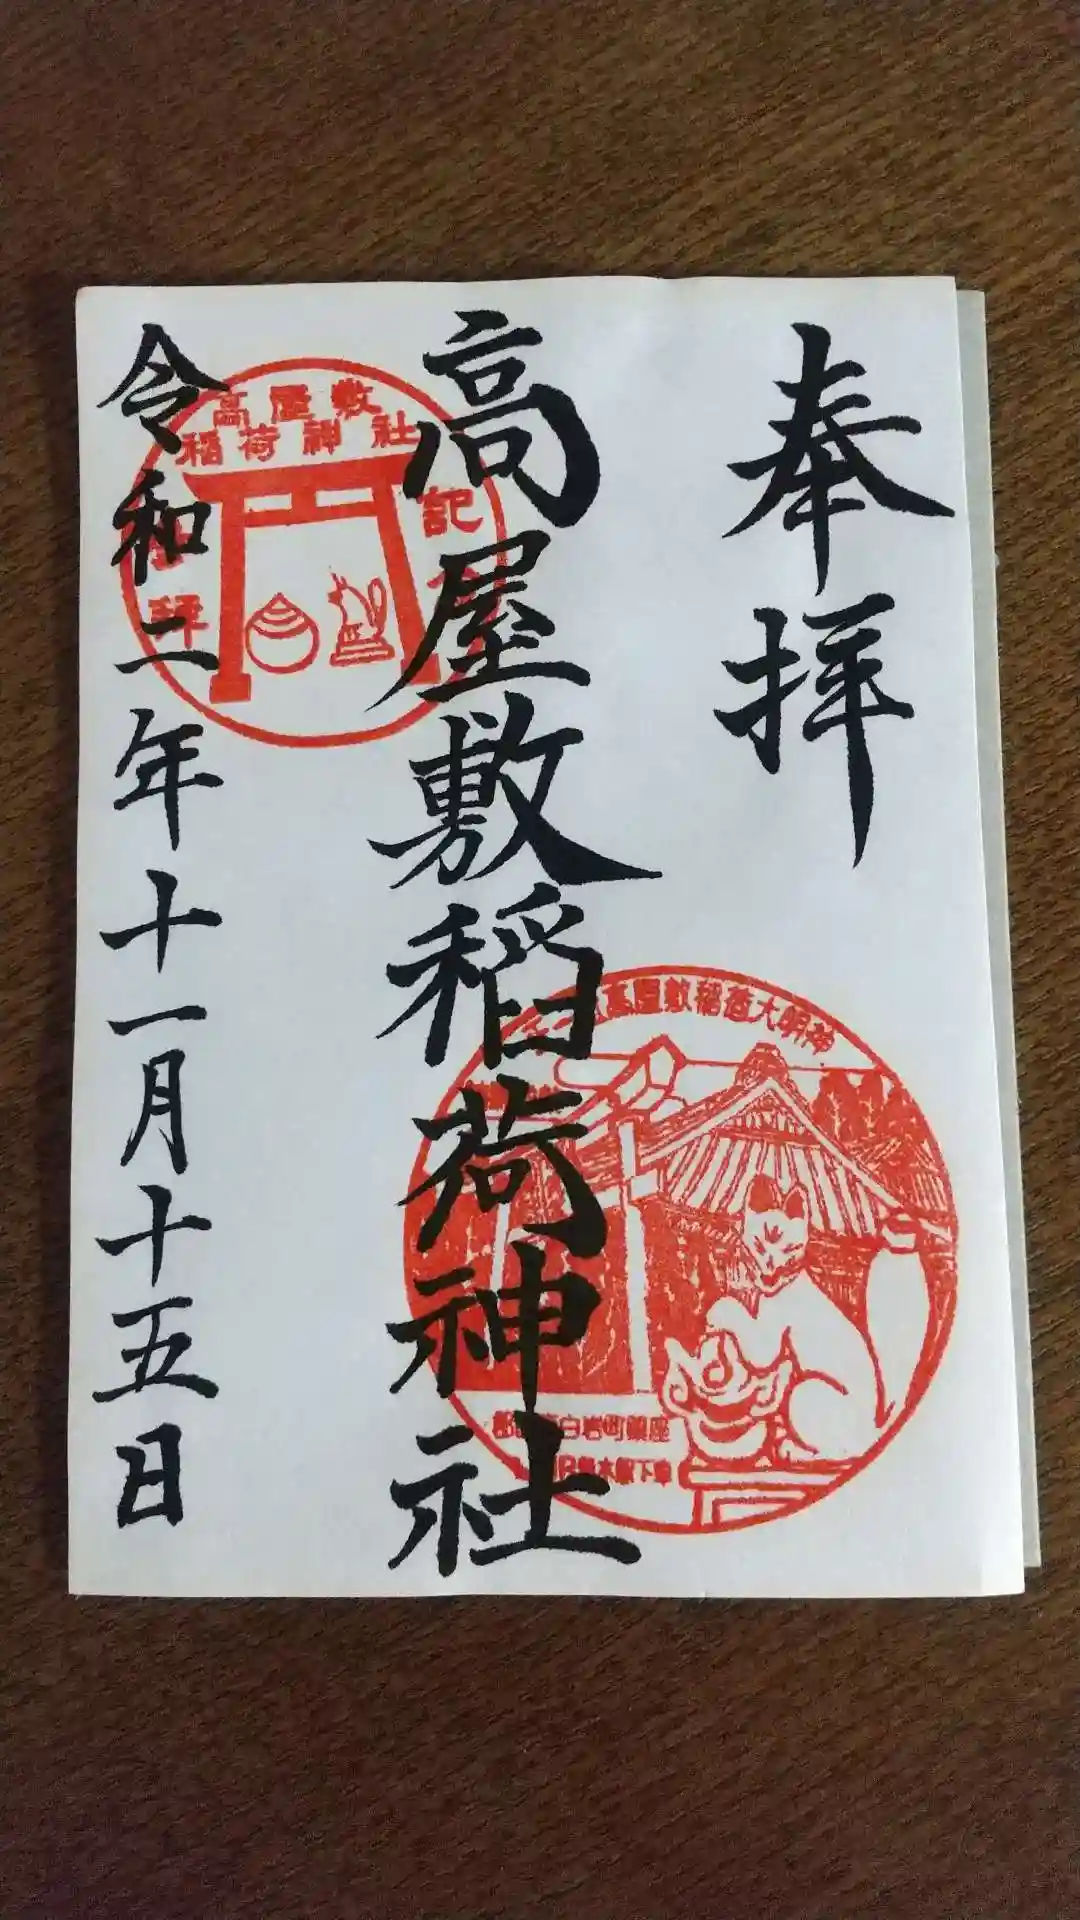 奉拝
高屋敷稲荷神社
令和二年十一月十五日
高屋敷
稲荷神社
記
拝
高屋敷稲荷大明神
白岩町鎮座
木駅下車